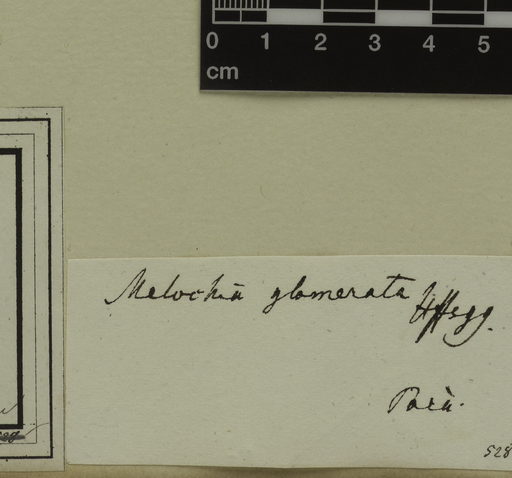 0 1 2 3 4 5
cm
Melochia glomerata Hffsgg.
Parà.
528